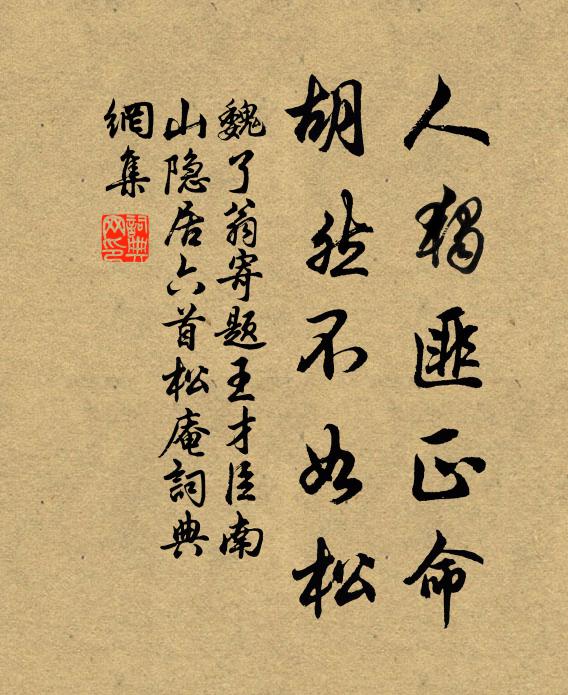 人独匪正命
胡然不如松
魏了翁寄题王才臣南
山隐居六首松庵詞典
網集
詞典網印